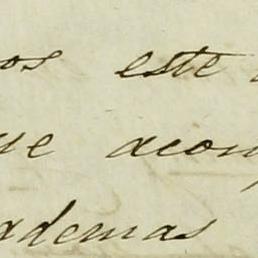 os este
ue acom
ademas